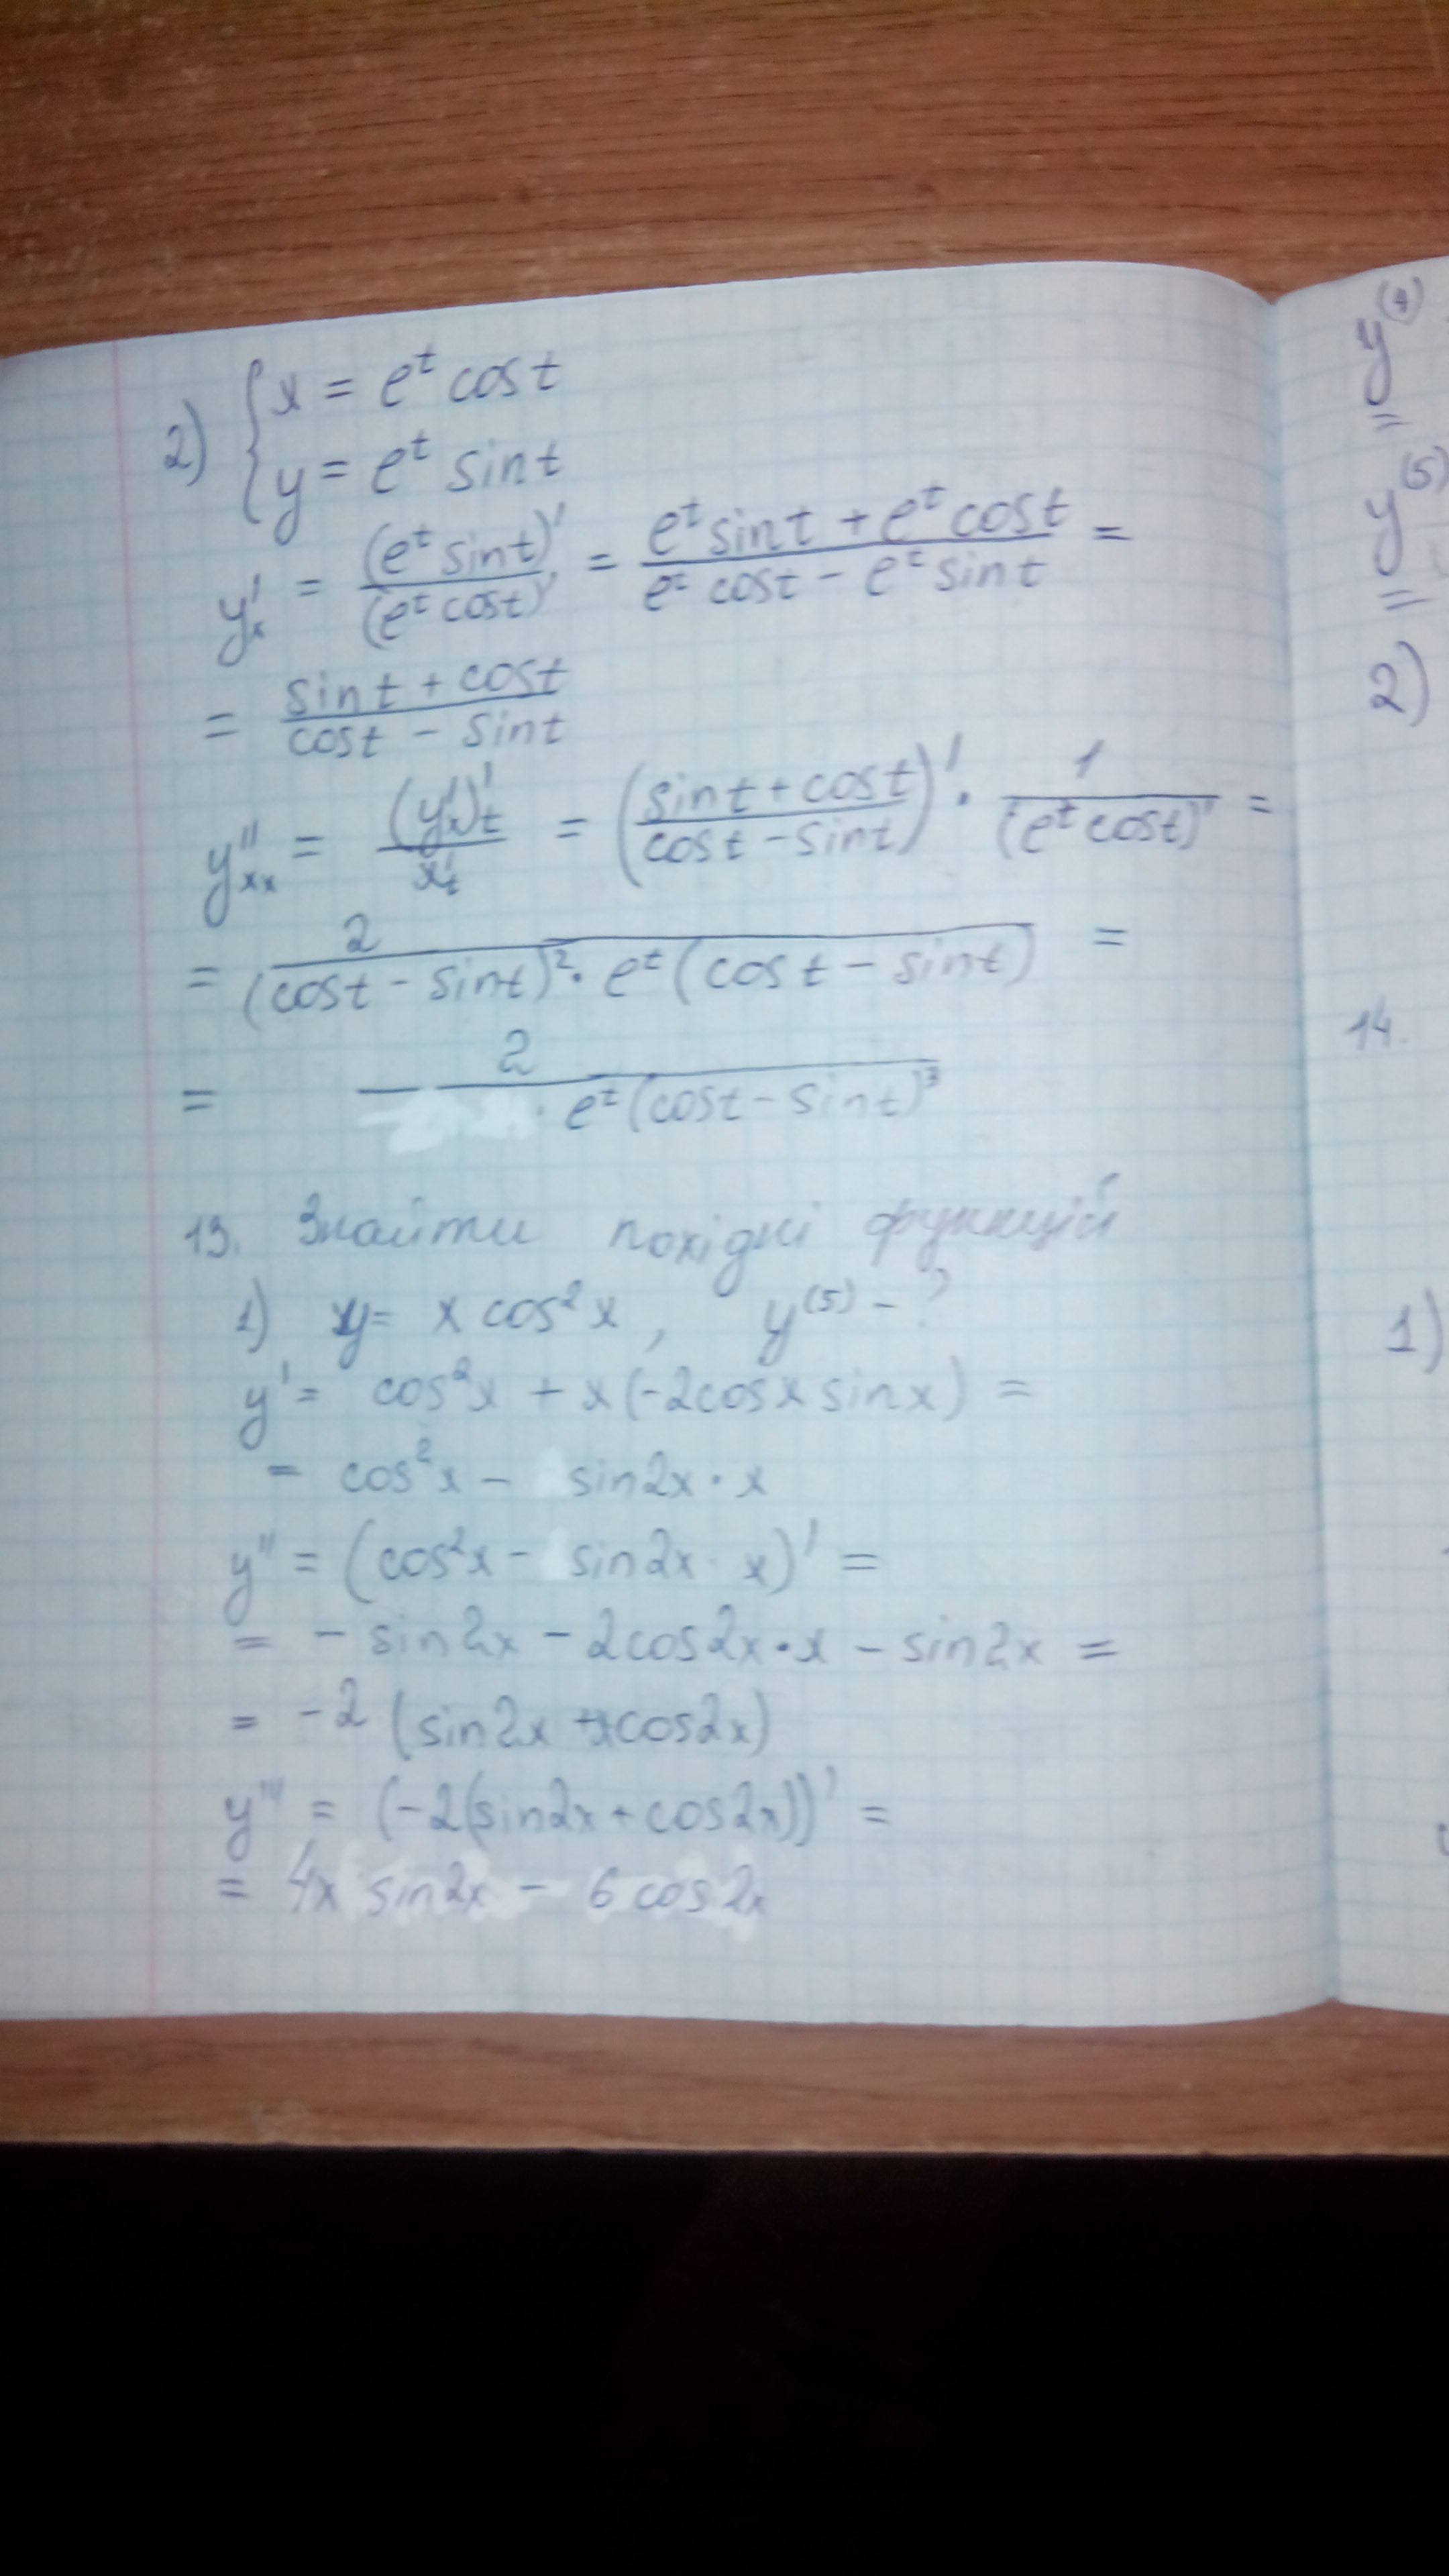 2) { x = e^t cos t
y = e^t sin t
y'_x = (e^t sin t)' / (e^t cos t)' = (e^t sin t + e^t cos t) / (e^t cos t - e^t sin t) =
= (sin t + cos t) / (cos t - sin t)
y''_xx = (y'_x)'_t / x'_t = ((sin t + cos t) / (cos t - sin t))' · 1 / (e^t cos t)' =
= 2 / ((cos t - sin t)^2 · e^t (cos t - sin t)) =
= 2 / (e^t (cos t - sin t)^3)
13. Знайти похідні функцій
1) y = x cos^2 x , y^(5) - ?
y' = cos^2 x + x (-2cos x sin x) =
= cos^2 x - sin2x · x
y'' = (cos^2 x - sin2x · x)' =
= - sin2x - 2cos2x · x - sin2x =
= -2 (sin2x + x cos2x)
y''' = (-2(sin2x + cos2x))' =
= 4x sin2x - 6 cos2x
y^(4)
=
y^(5)
=
2)
14.
1)